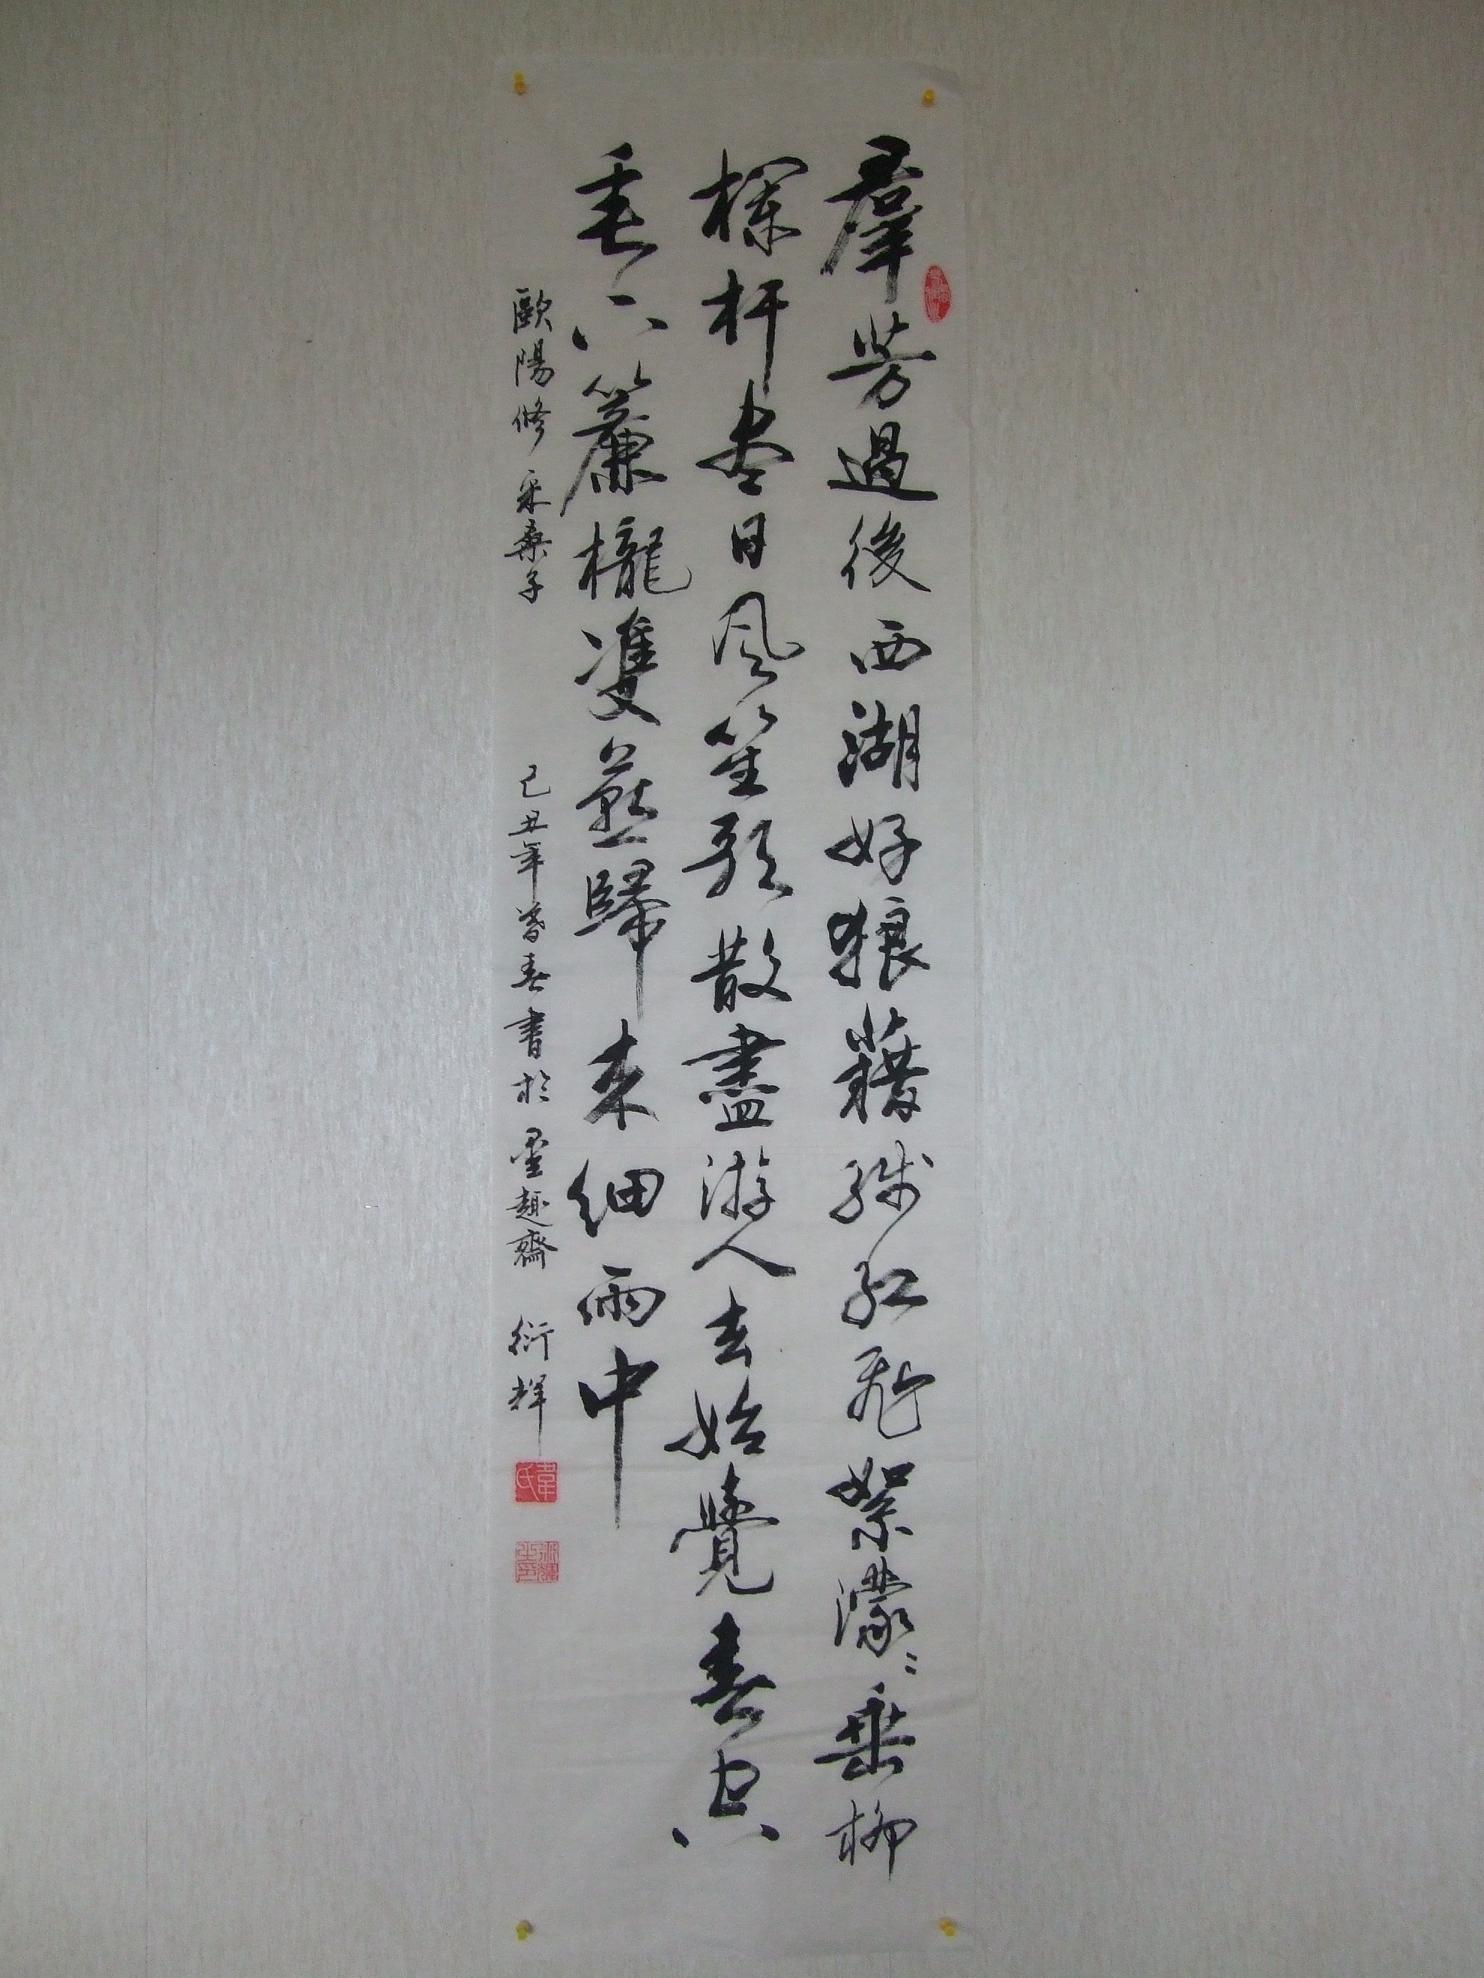 羣芳過後西湖好狼藉殘紅飛絮濛〻垂柳
欄杆盡日風笙歌散盡游人去始覺春空
垂下簾櫳雙燕歸来細雨中
歐陽修采桑子 己丑年暮春書於墨趣齋 衍輝
韋氏